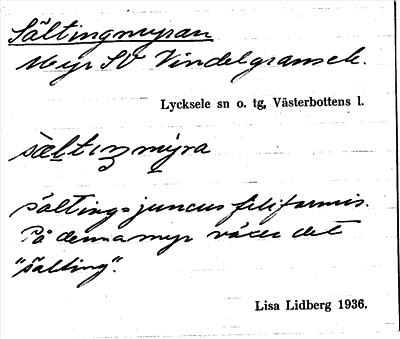 Sältingmyran
Myr SV Vindelgransele.
Lycksele sn o. tg, Västerbottens l.
sält
sälting = juncus filiformis.
På denna myr växer det
"sälting".
Lisa Lidberg 1936.